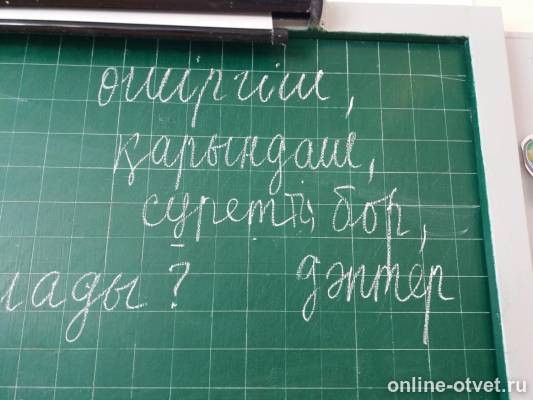 өшіргіш,
қарындаш,
сүретті бор,
лады? дәптер
online-otvet.ru